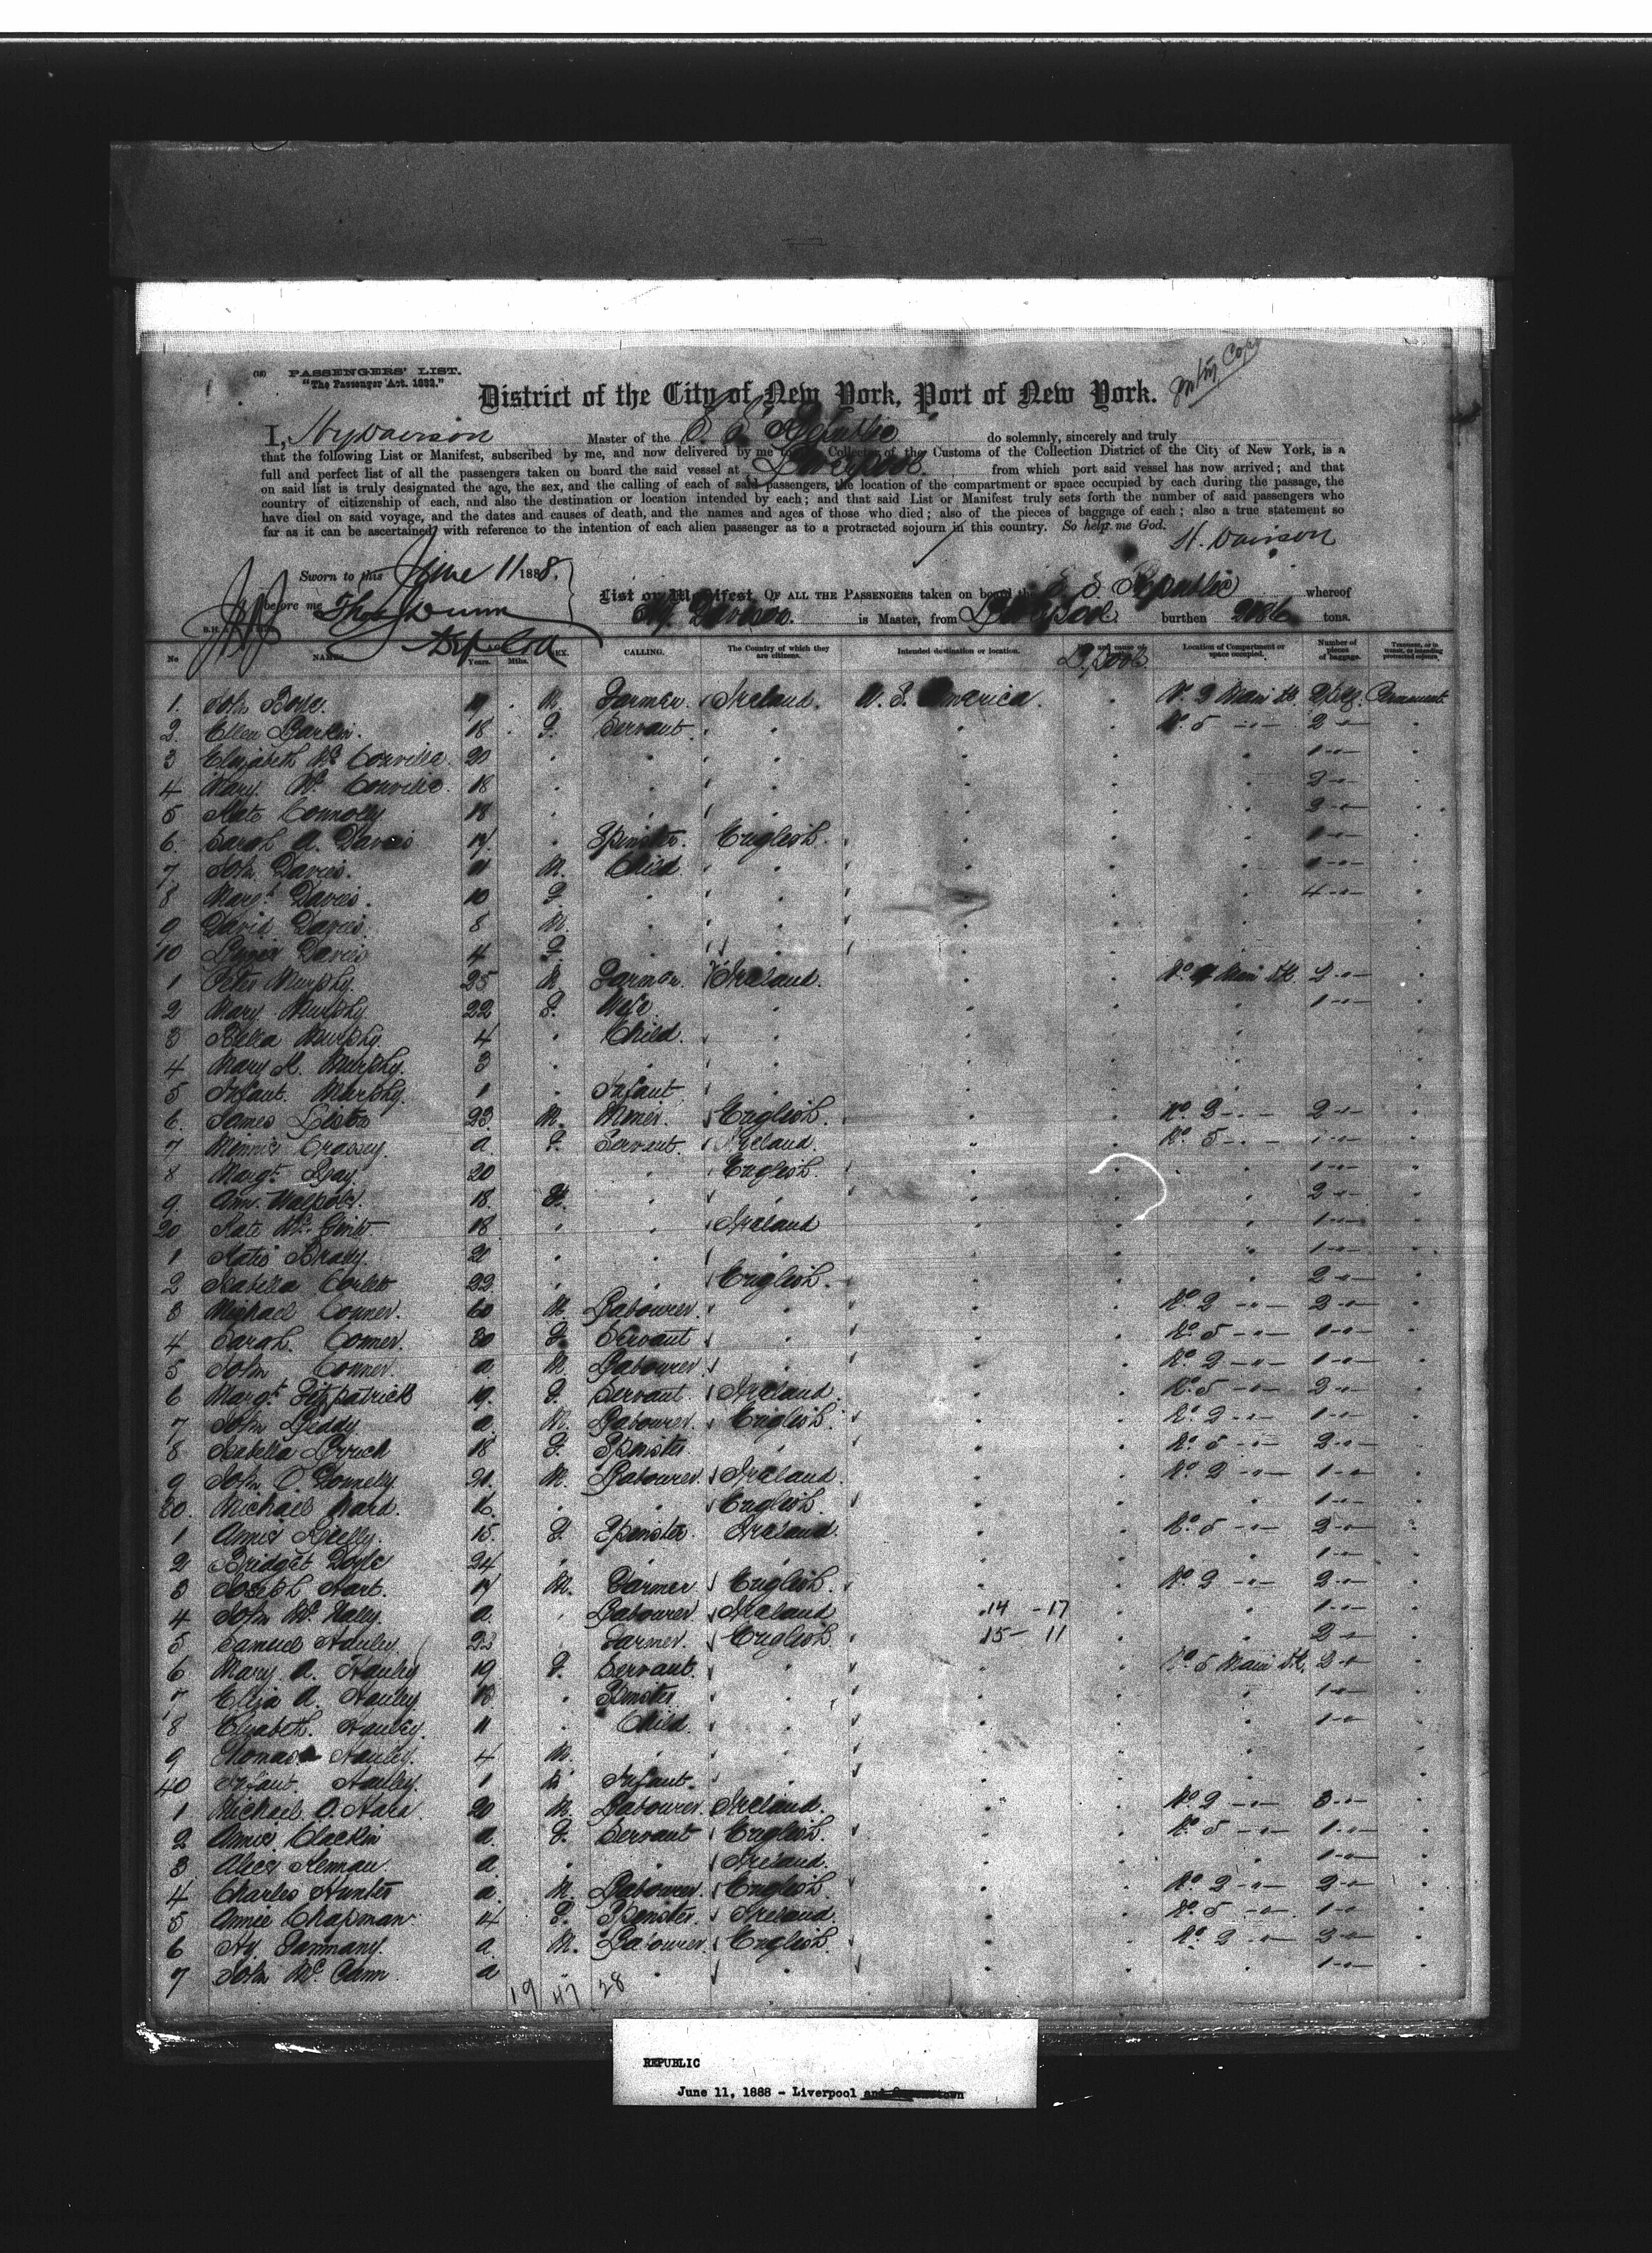 PASSENGERS' LIST.
"The Passenger Act. 1882."
District of the City of New York, Port of New York.
I, Hy Davison Master of the S. S. Republic do solemnly, sincerely and truly
that the following List or Manifest, subscribed by me, and now delivered by me to the Collector of the Customs of the Collection District of the City of New York, is a
full and perfect list of all the passengers taken on board the said vessel at Liverpool from which port said vessel has now arrived; and that
on said list is truly designated the age, the sex, and the calling of each of said passengers, the location of the compartment or space occupied by each during the passage, the
country of citizenship of each, and also the destination or location intended by each; and that said List or Manifest truly sets forth the number of said passengers who
have died on said voyage, and the dates and causes of death, and the names and ages of those who died; also of the pieces of baggage of each; also a true statement so
far as it can be ascertained, with reference to the intention of each alien passenger as to a protracted sojourn in this country. So help me God.
H. Davison
Sworn to this June 11 1888.
before me
List or Manifest OF ALL THE PASSENGERS taken on board the S S Republic whereof
Hy. Davison. is Master, from Liverpool burthen 2086 tons.
No NAMES Years. Mths. SEX. CALLING. The Country of which they are citizens. Intended destination or location. Location of Compartment or space occupied. Number of pieces of baggage.
1. John 19 M. Farmer. Ireland. U. S. America. No. 2 Main Dk 2 Pkg. Permanent
2. Ellen Larkin. 18 F. Servant No. 5 2
3 Elizabeth McConville. 20 1
4 Mary McConville. 18 2
5 Kate Connolly 18 2
6. Sarah A. Davies 17. Spinster. English. 1
7 John Davies. 11 M. Child 1
8 Margt. Davies. 10 F. 4
9 David Davies. 8 M.
10 Davies 4 F.
1 Peter Murphy. 25 M. Farmer. Ireland. No. 4 Main Dk. 2
2 Mary Murphy. 22 F. Wife 1
3 Bella Murphy. 4 Child.
4 Mary A. Murphy. 3
5 Infant. Murphy. 1 Infant
6. James 23. M. Miner. English. No. 2 2
7 Minnie Crossey. a. F. Servant. Ireland No. 5 1
8 Margt. 20 English 1
9. Ann. Walpole. 18. F. 2
20 Kate 18 Ireland 1
1 Katie Brady. 20 1
2 Isabella 22 English. 2
3 Michael Conner. 60 M. Labourer. No. 2 2
4 Sarah. Conner. 30 F. Servant No. 5 1
5 John Conner a. M. Labourer. No. 2 1
6 Margt. Fitzpatrick 19. F. Servant. Ireland. No. 5 2
7 John a. M. Labourer. English. No. 2 1
8 Isabella 18 F. Spinster No. 5 2
9 John O. Donnelly. 21. M. Labourer. Ireland. No. 2 1
30. Michael Ward. 16. English. 1
1 Annie Kelly. 15. F. Spinster Ireland. No. 5 2
2 Bridget Doyle 24 1
3 Joseph Hart. 17 M. Farmer English. No. 2 2
4 John a. Labourer Ireland 14 - 17 1
5 Samuel Hanley 22 Farmer. English. 15 - 11 2
6 Mary A. Hanley 19 F. Servant. No. 5 Main Dk. 2
7 Eliza A. Hanley 18 Spinster 1
8 Elizabeth. Hanley. 11 Child. 1
9 Thomas Hanley. 4 M.
40 Infant Hanley. 1 Infant.
1 Michael O. Hara. 20 M. Labourer. Ireland. No. 2 3
2 Annie a. F. Servant English. No. 5 1
3 Alice a. Ireland. 1
4 Charles Hunter a. M. Labourer. English. No. 2 2
5 Annie Chapman 14 F. Spinster. Ireland. No. 5 1
6 Hy. a. M. Labourer. English. No. 2 2
7 John McCann. a 1
19 / 47 / 28
REPUBLIC
June 11, 1888 - Liverpool